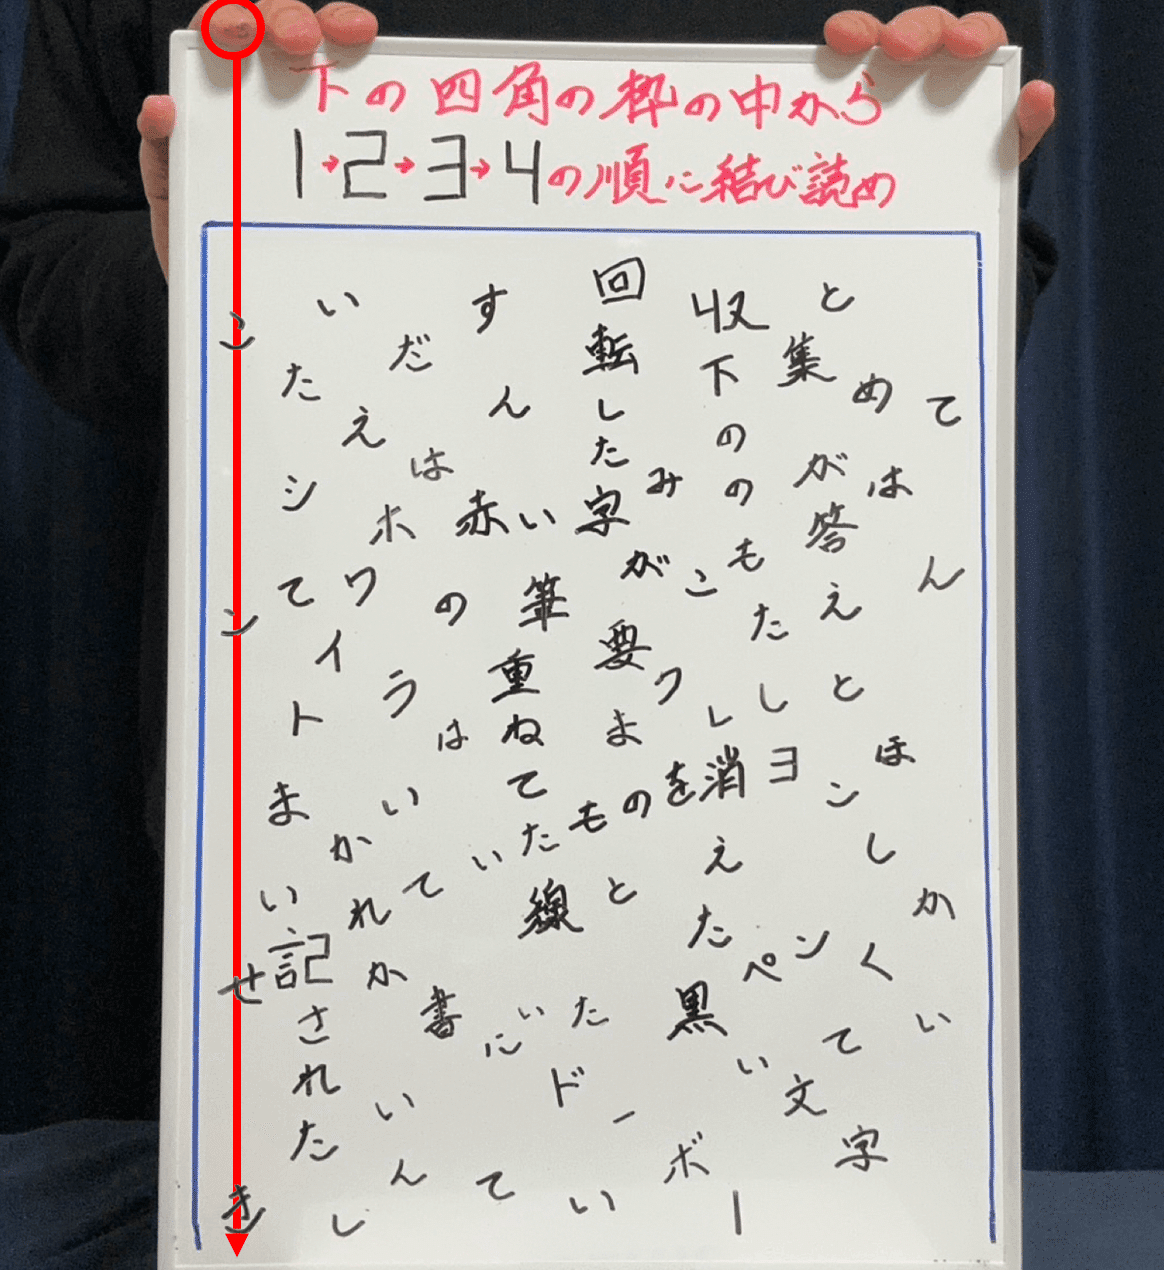 下の四角の枠の中から
1→2→3→4の順に結び読め
こンせき
いだんは
たえホワイトまい記されたし
シてラいかれかいん
すんの筆重ねていたもののを消ヨンしかい
赤い字がこもたしとほ
はていにドーボー
回転した字
収下ののみ
と集めてはん
が答えと
要まクレ
えた黒い文字
線と
書いたいて
ペンくて